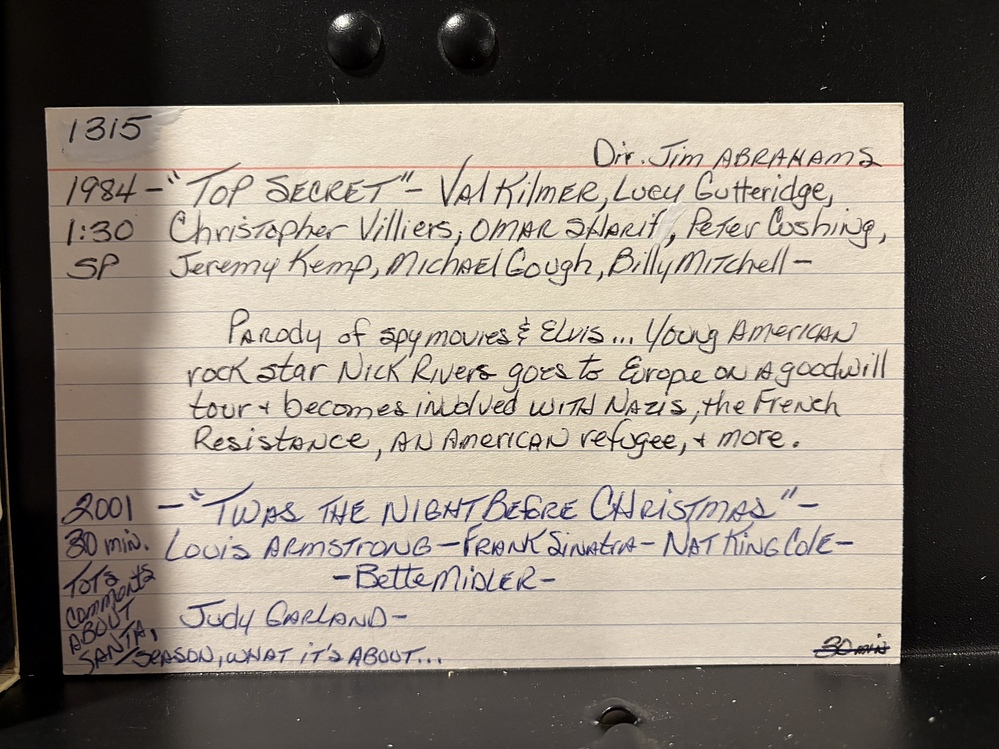 1315
Dir. Jim ABRAHAMS
1984 - "TOP SECRET" - Val Kilmer, Lucy Gutteridge,
1:30 Christopher Villiers, OMAR SHARIF, Peter Cushing,
SP Jeremy Kemp, Michael Gough, Billy Mitchell -
Parody of spy movies & Elvis... Young American
rock star Nick Rivers goes to Europe on a goodwill
tour + becomes involved WITH Nazis, the French
Resistance, AN American refugee, + more.
2001 - "TWAS THE NIGHT BEFORE CHRISTMAS" -
30 min. Louis ARMSTRONG - FRANK SINATRA - NAT KING Cole -
TOTS - Bette MIDLER -
comments
ABOUT Judy GARLAND -
SANTA,
SEASON, WHAT IT'S ABOUT...
30 min